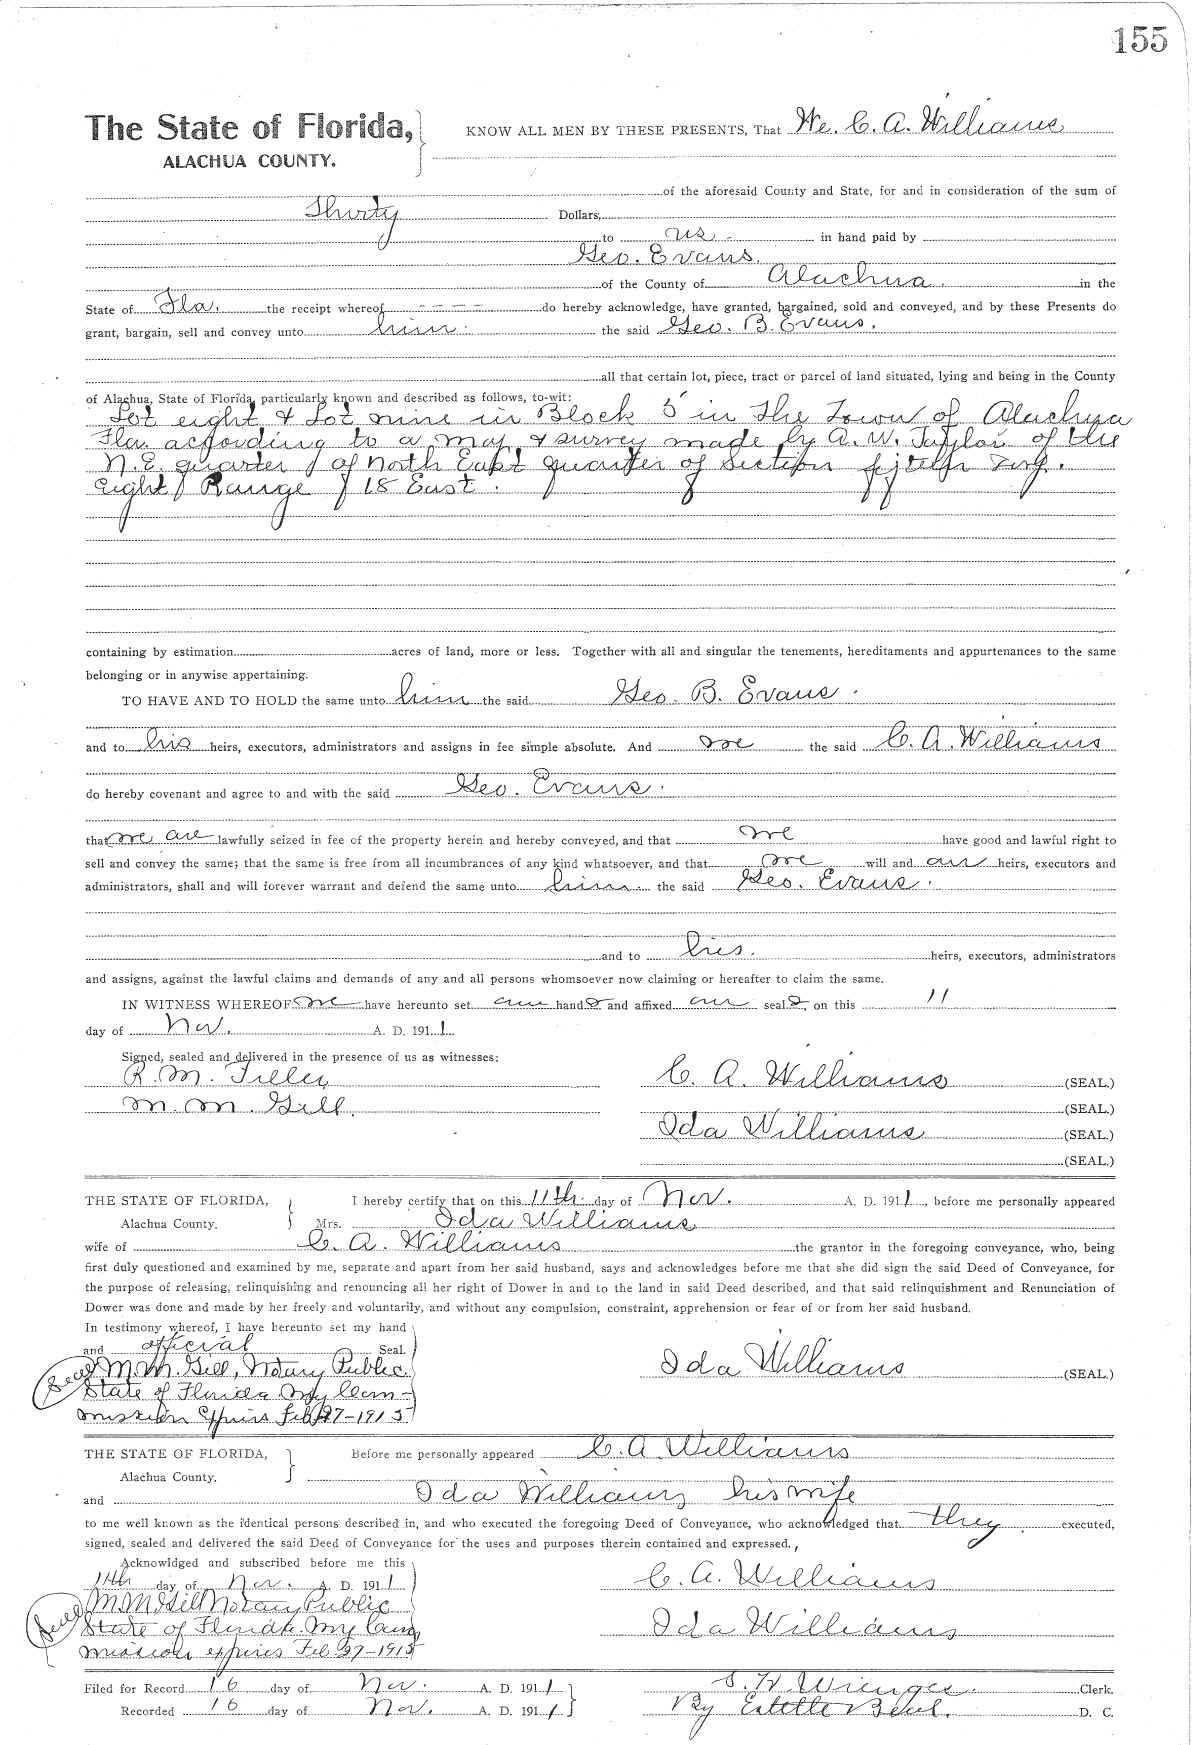 155
The State of Florida, KNOW ALL MEN BY THESE PRESENTS, That We. C. A. Williams
ALACHUA COUNTY.
of the aforesaid County and State, for and in consideration of the sum of
Thirty Dollars,
to us in hand paid by
Geo. Evans.
of the County of Alachua. in the
State of Fla. the receipt whereof ---- do hereby acknowledge, have granted, bargained, sold and conveyed, and by these Presents do
grant, bargain, sell and convey unto him. the said Geo. B. Evans.
all that certain lot, piece, tract or parcel of land situated, lying and being in the County
of Alachua, State of Florida, particularly known and described as follows, to-wit:
Lot eight & Lot nine in Block 5 in the Town of Alachua
Fla. according to a map & survey made by A. W. Taylor of the
N.E. quarter of North East quarter of Section fifteen Twp.
eight Range 18 East.
containing by estimation acres of land, more or less. Together with all and singular the tenements, hereditaments and appurtenances to the same
belonging or in anywise appertaining.
TO HAVE AND TO HOLD the same unto him the said Geo. B. Evans.
and to his heirs, executors, administrators and assigns in fee simple absolute. And we the said C. A. Williams
do hereby covenant and agree to and with the said Geo. Evans.
that we are lawfully seized in fee of the property herein and hereby conveyed, and that we have good and lawful right to
sell and convey the same; that the same is free from all incumbrances of any kind whatsoever, and that we will and our heirs, executors and
administrators, shall and will forever warrant and defend the same unto him. the said Geo. Evans.
and to his. heirs, executors, administrators
and assigns, against the lawful claims and demands of any and all persons whomsoever now claiming or hereafter to claim the same.
IN WITNESS WHEREOF, we have hereunto set our hands and affixed our seals, on this 11
day of Nov. A. D. 1911
Signed, sealed and delivered in the presence of us as witnesses:
R. M. C. A. Williams (SEAL.)
M. M. Gill. (SEAL.)
Ida Williams (SEAL.)
(SEAL.)
THE STATE OF FLORIDA, I hereby certify that on this 11th day of Nov. A. D. 1911, before me personally appeared
Alachua County. Mrs. Ida Williams
wife of C. A. Williams the grantor in the foregoing conveyance, who, being
first duly questioned and examined by me, separate and apart from her said husband, says and acknowledges before me that she did sign the said Deed of Conveyance, for
the purpose of releasing, relinquishing and renouncing all her right of Dower in and to the land in said Deed described, and that said relinquishment and Renunciation of
Dower was done and made by her freely and voluntarily, and without any compulsion, constraint, apprehension or fear of or from her said husband.
In testimony whereof, I have hereunto set my hand
and official Seal.
Seal M. M. Gill, Notary Public Ida Williams (SEAL)
State of Florida My Com-
mission Expires Feb 27-1915
THE STATE OF FLORIDA, Before me personally appeared C. A. Williams
Alachua County.
and Ida Williams his wife
to me well known as the identical persons described in, and who executed the foregoing Deed of Conveyance, who acknowledged that they executed,
signed, sealed and delivered the said Deed of Conveyance for the uses and purposes therein contained and expressed.
Acknowldged and subscribed before me this
11th day of Nov. A. D. 1911 C. A. Williams
Seal M. M. Gill Notary Public
State of Florida. My Com Ida Williams
mission expires Feb. 27-1915
Filed for Record 16 day of Nov. A. D. 1911 S. H. Wienges. Clerk.
Recorded 16 day of Nov. A. D. 1911 By Estelle D. C.